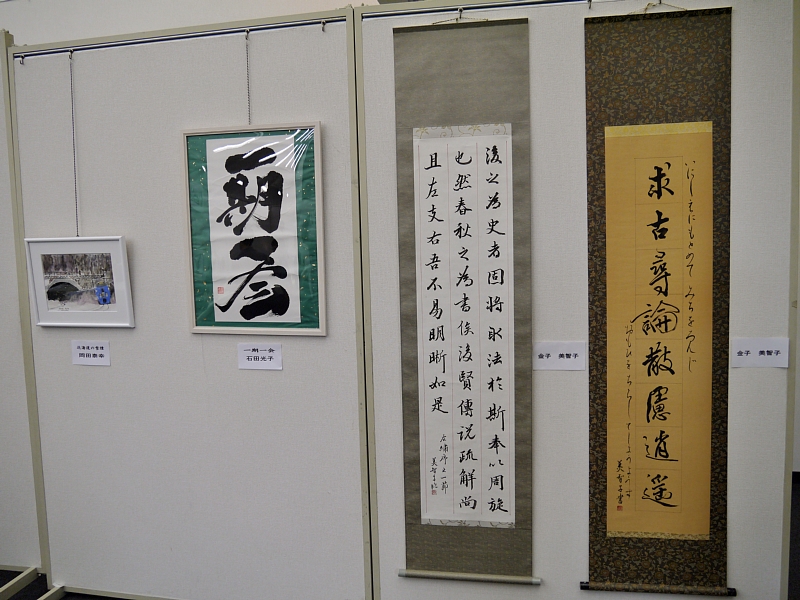 北海道の雪橋
岡田泰幸
一期一会
一期一会
石田光子
後之為史者固将取法於斯奉以周旋
也然春秋之為書俟後賢傳説疏解尚
且左支右吾不易明晰如是
金子 美智子
求古尋論散慮逍遥
いにしえにもとめて みちをろんじ
美智子書
金子 美智子